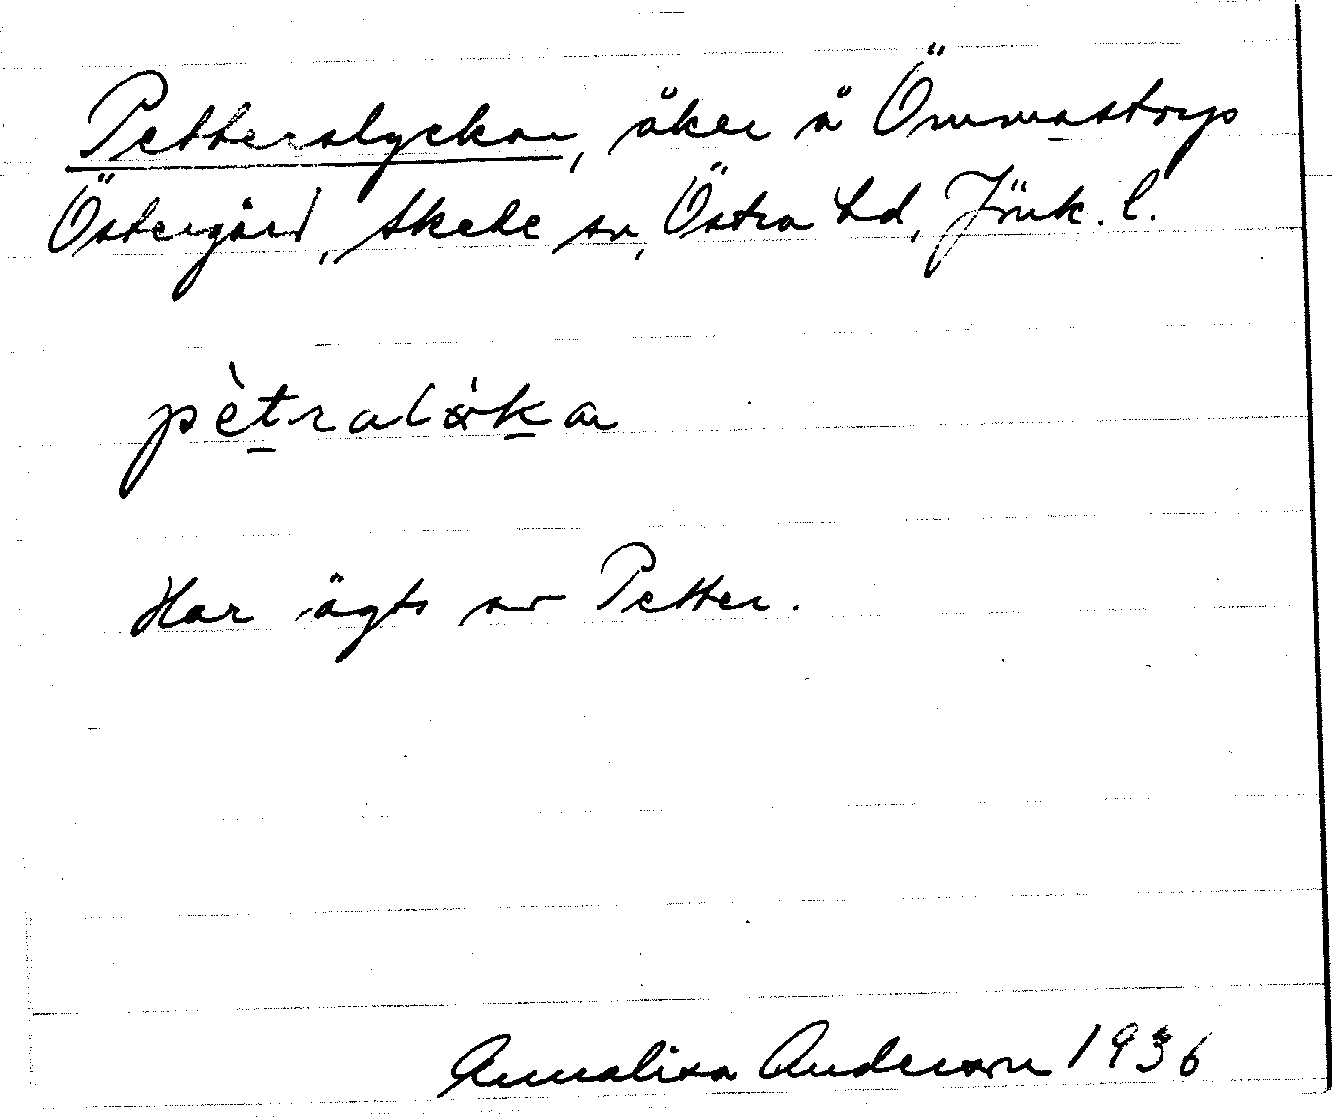 Petterslyckan, åker å Ömmastorps
Östergård, Skede sn, Östra hd, Jönk. l.
pètralø̀ka
Har ägts av Petter.
Annalisa Anderson 1936